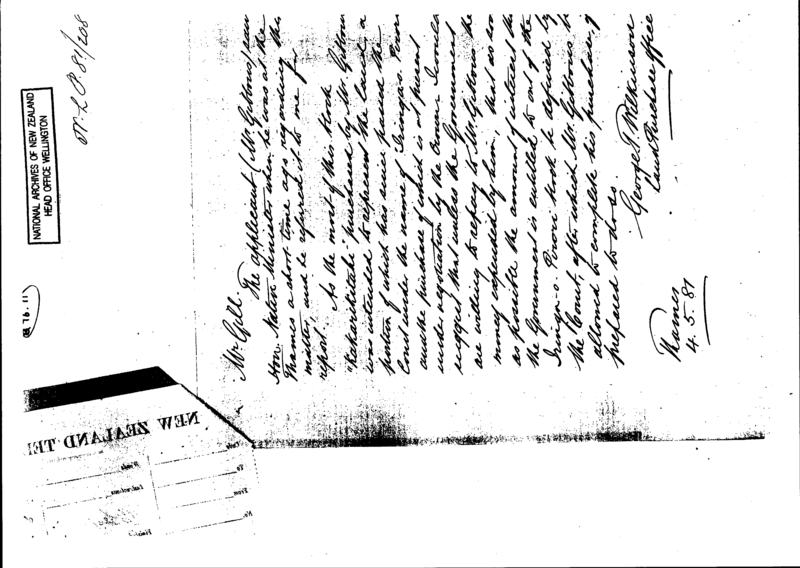 N.L.P. 81/208
NATIONAL ARCHIVES OF NEW ZEALAND
HEAD OFFICE WELLINGTON
Mr Gill.
The applicant (Mr Gibbons) saw
Hon. Native Minister when he was at the
Thames a short time ago regarding this
matter, and he referred it to me for
report.
As the most of this block
purchased by Mr Gibbons
was intended to represent the land a
portion of which has since passed the
Court under the name of
and the purchase of which is at present
under negotiation by the Crown I would
suggest that unless the Government
are willing to repay to Mr Gibbons the
money expended by him, that as soon
as possible the amount of interest the
the Government is entitled to out of the
block be defined by
the Court, after which Mr Gibbons be
allowed to complete his purchase, if
prepared to do so.
George T. Wilkinson
Land Purchase Officer
Thames
4.5.81
NEW ZEALAND TE
Code
Words
To
Instructions
From
No.